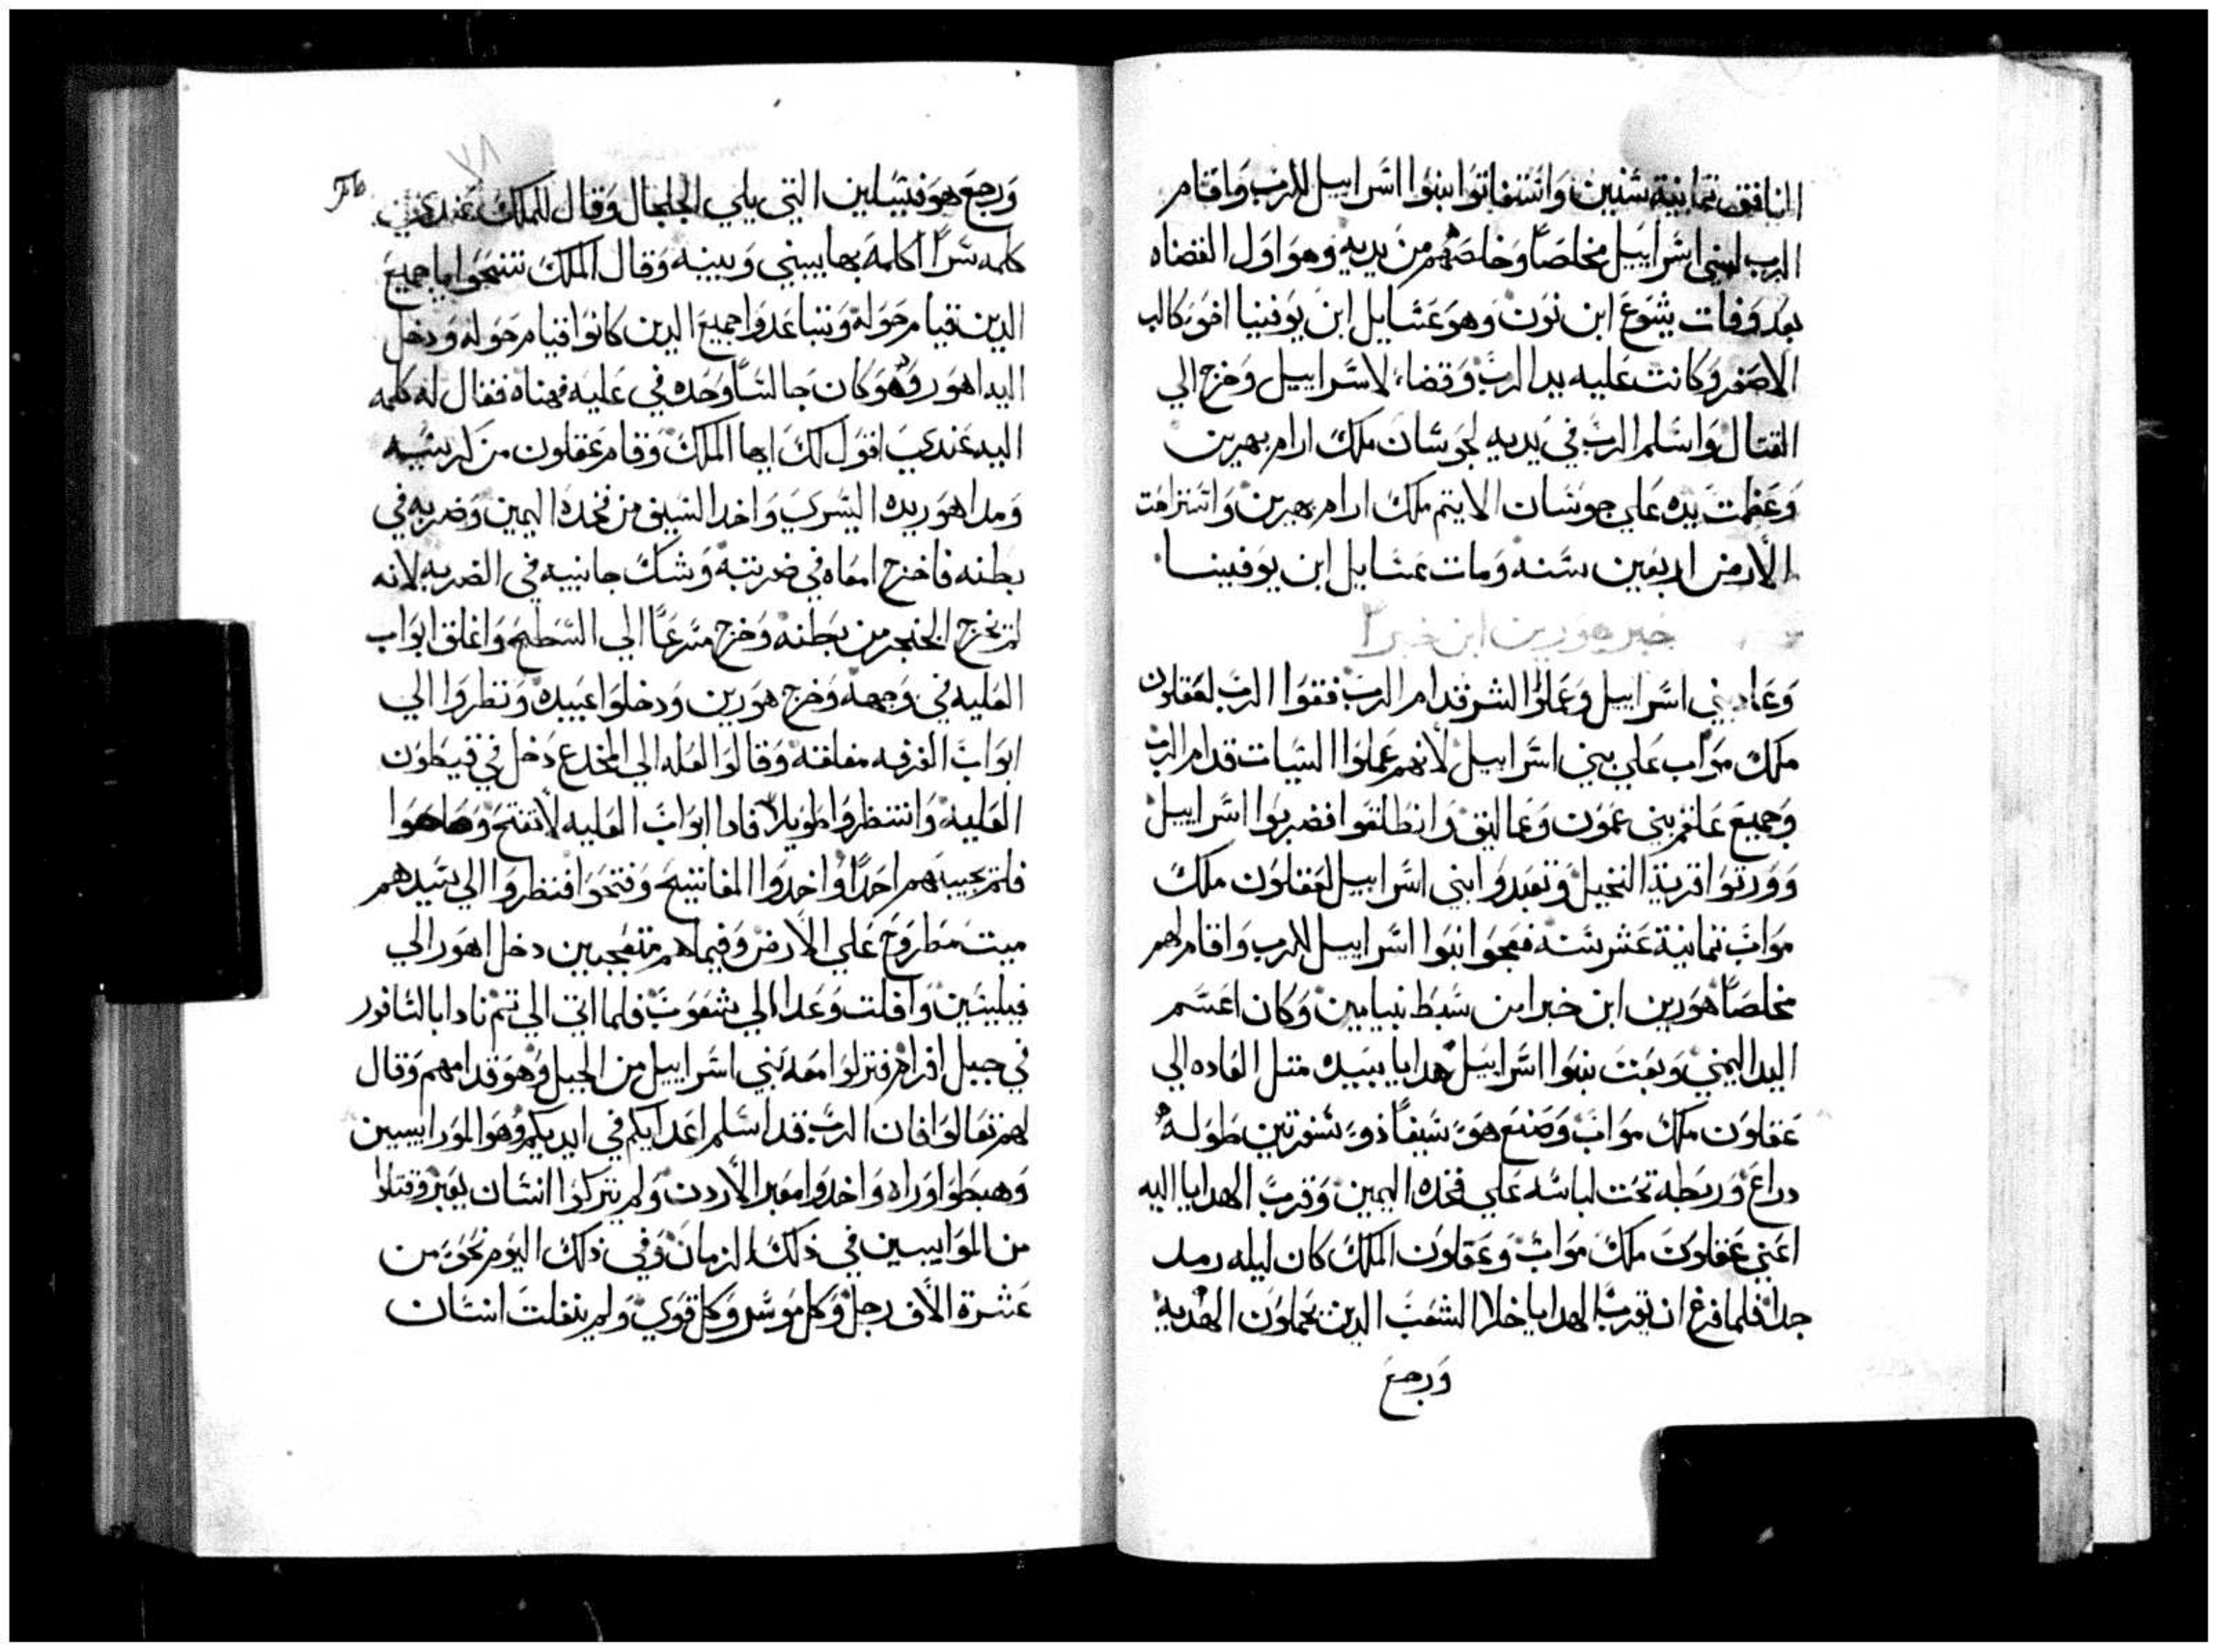 النافق تمانية سنين واستغاتوا بنوا اسراييل للرب واقام
الرب لبني اسراييل مخلصا وخلصهم من يديه وهو اول القضاه
بعد وفات يشوع ابن نون وهو عتنايل ابن يوفنيا اخو كالب
الاصغر وكانت عليه يد الرب وقضاء لاسراييل وخرج الي
القتال واسلم الرب في يديه لجوشان ملك ارام بهرين
وعظمت يده علي جوشان الايتم ملك ارام بهرين واستراحت
الارض اربعين سنه ومات عتنايل ابن يوفينا
خبر هورين ابن خبرا
وعاد بني اسراييل وعملوا الشر قدام الرب فقوا الرب لعقلون
ملك مواب علي بني اسراييل لانهم عملوا السيات قدام الرب
وجميع علفهم بني عمون وعماليق وانطلقوا فضربوا اسراييل
وورتوا قرية النخيل وتعبدوا بني اسراييل لعقلون ملك
مواب تمانية عشر سنه فعجوا بنوا اسراييل للرب واقام لهم
مخلصا هورين ابن خبرا من سبط بنيامين وكان اعسم
اليد اليمني وبعت بنوا اسراييل هدايا بيده متل العاده الي
عقلون ملك مواب وصنع هو سيفا ذو شفرتين طوله
دراع وربطه تحت لباسه علي فخده اليمين وقرب الهدايا اليه
اعني عقلون ملك مواب وعقلون الملك كان ليله رمد
جدا فلما فرغ ان يقرب الهدايا خلا الشعب الدين يحملون الهديه
ورجع
٧٨
ورجع هو فتيلين التي يلي الجلجال وقال للملك عندي
كلمه سرا اكلمه بها بيني وبينه وقال الملك تنحوا يا جميع
الدين قيام حوله وتباعدوا جميع الدين كانوا قيام حوله ودخل
اليه اهور وهو كان جالسا وحده في عليه فهناه فقال له كلمه
اليه عندي اقول لك ايها الملك وقام عقلون من كرسيه
ومد اهور يده اليسري واخد السيف من فخده اليمين وضربه في
بطنه فاخرج امعاه في ضربته وشك جانبيه في الضربه لانه
لم يخرج الخنجر من بطنه وخرج مسرعا الي السطح واغلق ابواب
العليه في وجهه وخرج هورين ودخلوا عبيده ونظروا الي
ابواب الغرفه مغلقة وقالوا لعله الي المخدع دخل في قيطون
العليه وانتظروا طويلا فادا ابواب العليه لا تفتح وصاحوا
فلم يجيبهم احدا واخدوا المفاتيح وفتحوا فنظروا الي سيدهم
ميت مطروح علي الارض وفيما هم متعجبين دخل اهور الي
فيلينين وافلت وعدا الي شعوب فلما اتي الي تم نادا بالناقور
في جبل افرام فنزلوا معه بني اسراييل من الجبل وهو قدامهم وقال
لهم تعالوا فان الرب قد اسلم اعدايكم في ايديكم وهو الموراييين
وهبطوا وراه واخدوا معبر الاردن ولم يتركوا انسان يعبر وقتلوا
من الموابيين في ذلك الزمان وفي ذلك اليوم نحو من
عشرة الاف رجل وكل موسر وكل قوي ولم ينفلت انسان